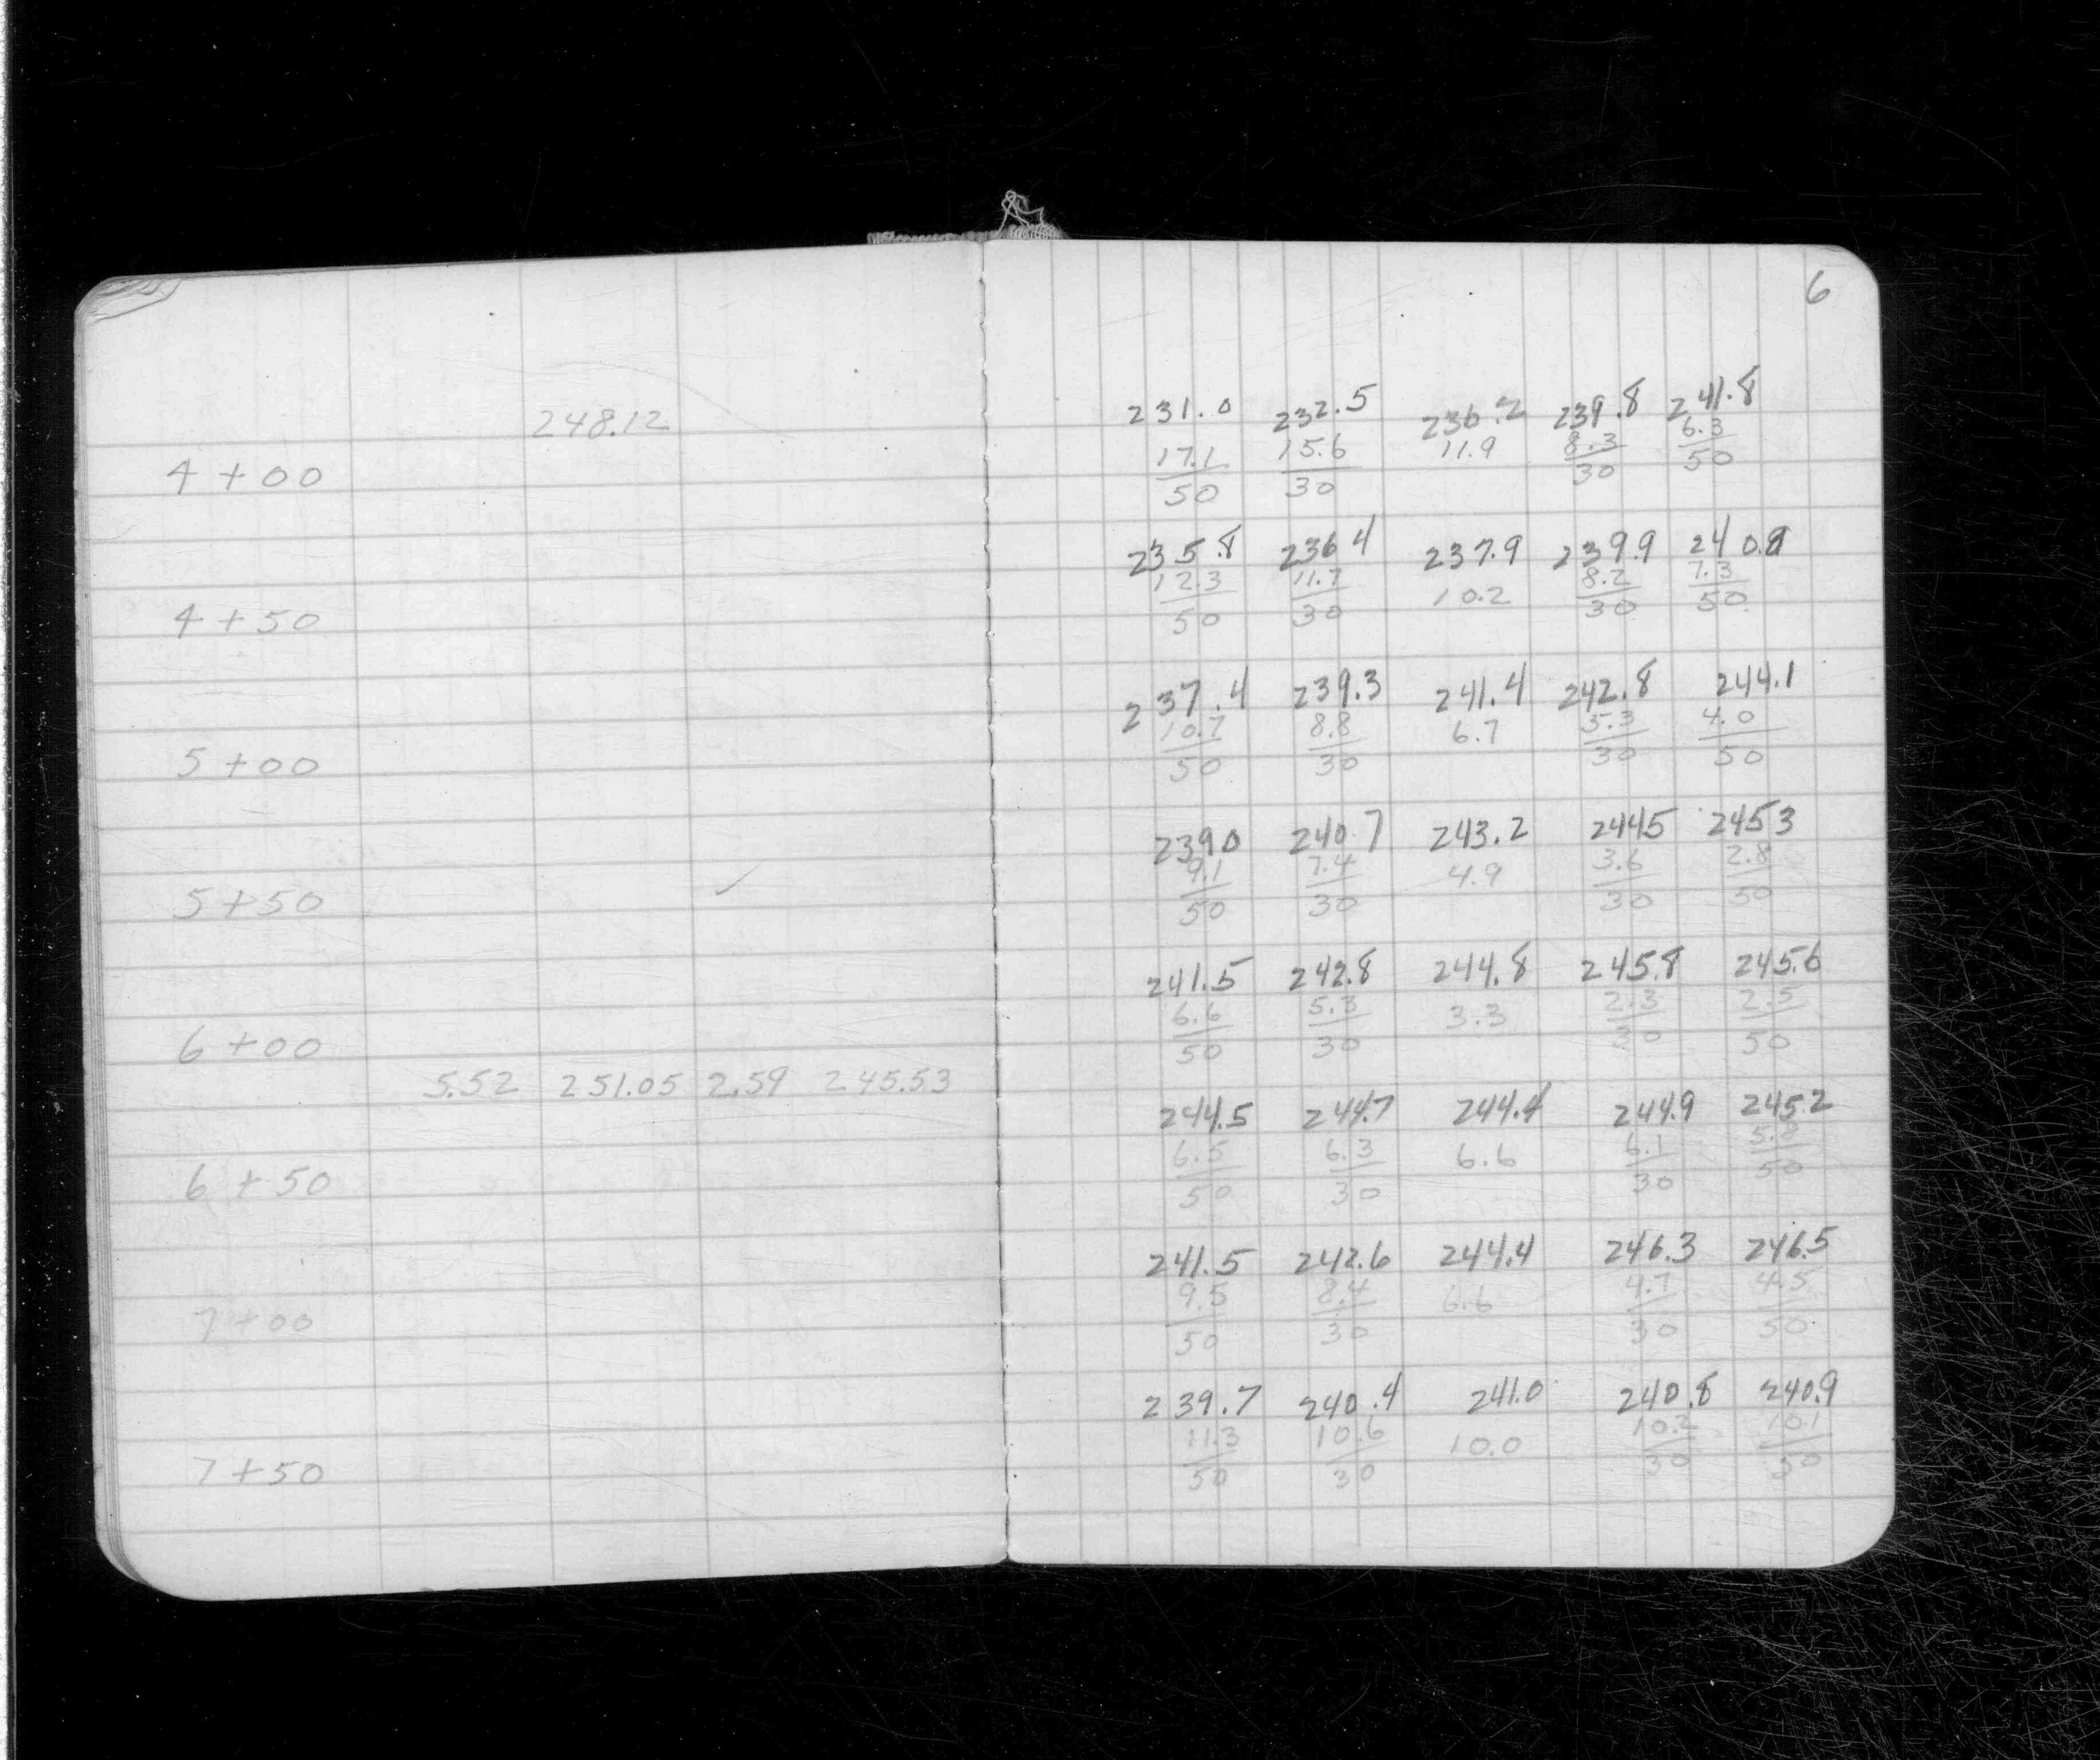 6
248.12
231.0 232.5 236.2 239.8 241.8
17.1 15.6 11.9 8.3 6.3
4+00
50 30 30 50
235.8 236 4 237.9 239.9 240.8
12.3 11.7 10.2 8.2 7.3
4+50
50 30 30 50
237.4 239.3 241.4 242.8 244.1
10.7 8.8 6.7 5.3 4.0
5+00
50 30 30 50
2390 240.7 243.2 2445 2453
9.1 7.4 4.9 3.6 2.8
5+50
50 30 30 50
241.5 242.8 244.8 245.8 245.6
6.6 5.3 3.3 2.3 2.5
6+00
50 30 30 50
5.52 251.05 2.59 245.53
244.5 244.7 244.4 244.9 245.2
6.5 6.3 6.6 6.1 5.8
6+50
50 30 30 50
241.5 242.6 244.4 246.3 246.5
9.5 8.4 6.6 4.7 4.5
7+00
50 30 30 50
239.7 240.4 241.0 240.8 240.9
11.3 10.6 10.0 10.2 10.1
7+50
50 30 30 50